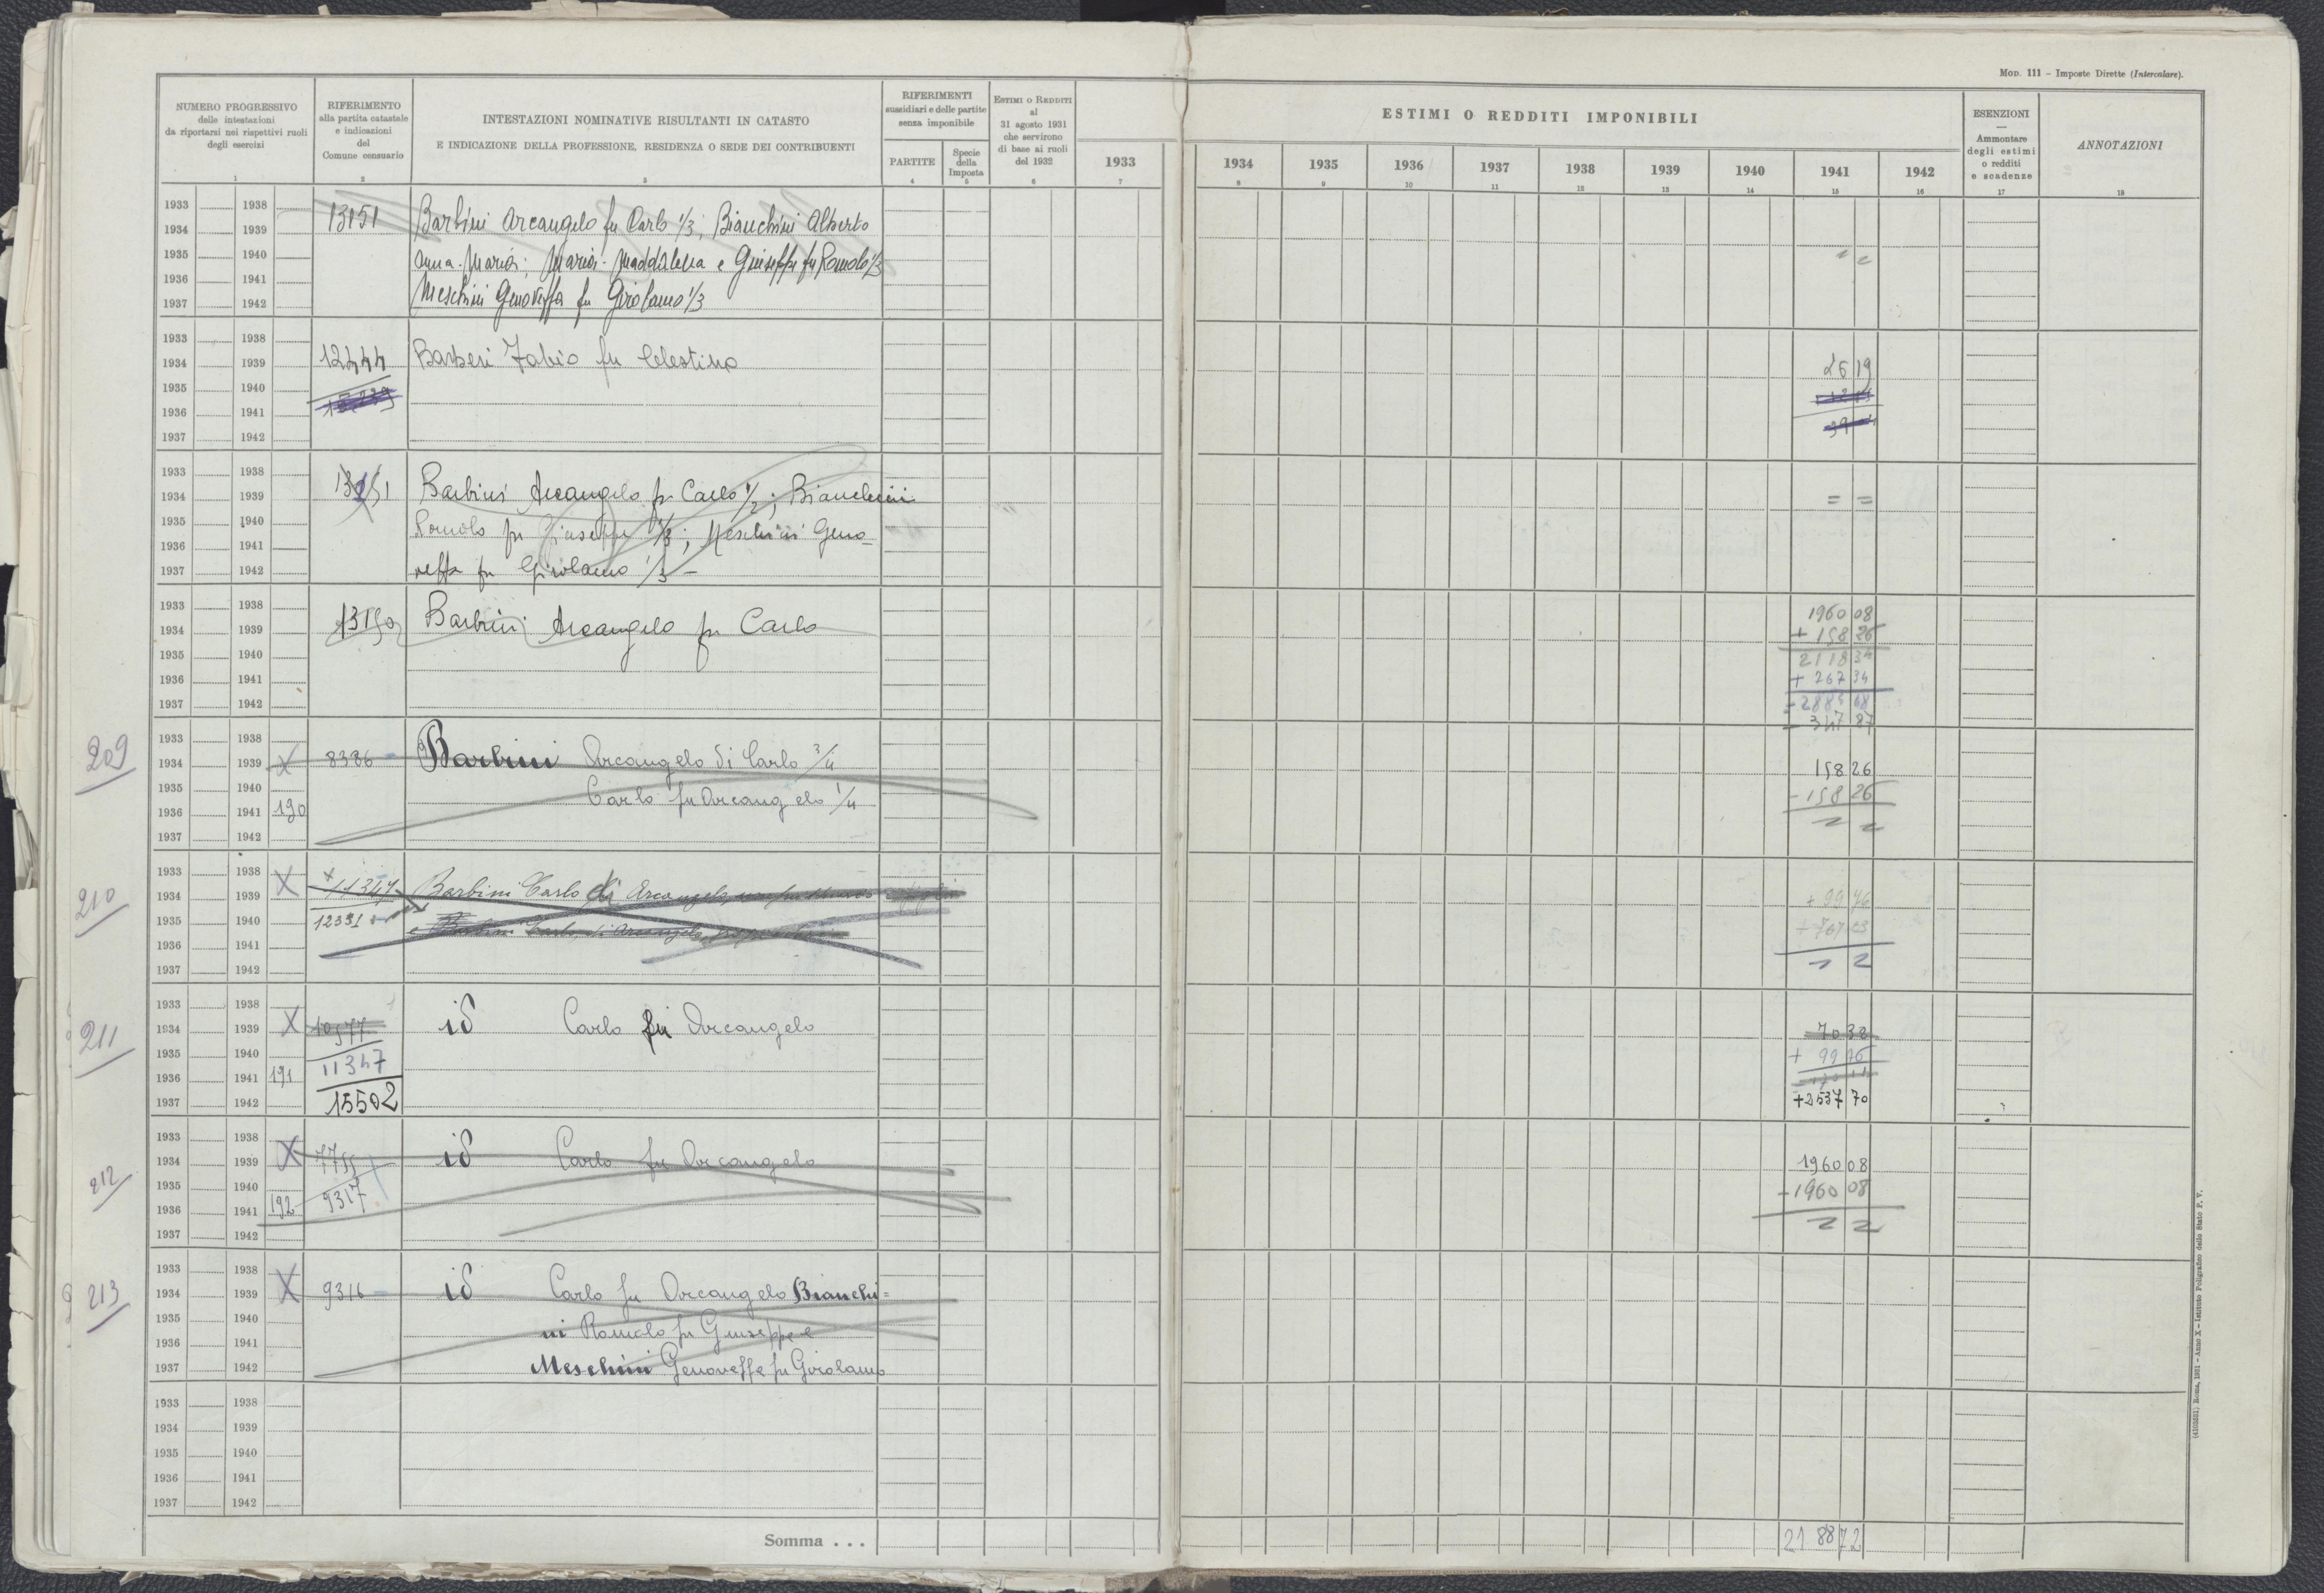 Mod. 111 – Imposte Dirette (Intercalare).
NUMERO PROGRESSIVO
delle intestazioni
da riportarsi nei rispettivi ruoli
degli esercizi
1
RIFERIMENTO
alla partita catastale
e indicazioni
del
Comune censuario
2
INTESTAZIONI NOMINATIVE RISULTANTI IN CATASTO
E INDICAZIONE DELLA PROFESSIONE, RESIDENZA O SEDE DEI CONTRIBUENTI
3
RIFERIMENTI
sussidiari e delle partite
senza imponibile
PARTITE
4
Specie
della
Imposta
5
Estimi o Redditi
al
31 agosto 1931
che servirono
di base ai ruoli
del 1932
6
1933
7
ESTIMI O REDDITI IMPONIBILI
1934 1935 1936 1937 1938 1939 1940 1941 1942
8 9 10 11 12 13 14 15 16
ESENZIONI
—
Ammontare
degli estimi
o redditi
e scadenze
17
ANNOTAZIONI
18
1933 1938
1934 1939 13151 Barbini Arcangelo fu Carlo 1/3; Bianchini Alberto
1935 1940 Anna-Maria; Maria-Maddalena e Giuseppe fu Romolo 1/3
1936 1941
1937 1942 Meschini Genoveffa fu Girolamo 1/3
1933 1938
1934 1939 12444 Barberi Fabio fu Celestino 26 19
1935 1940
1936 1941
1937 1942
1933 1938
1934 1939 Barbini Arcangelo fu Carlo 1/2; Bianchini = =
1935 1940 Romolo fu Giuseppe 1/3; Meschini Geno-
1936 1941
1937 1942 veffa fu Girolamo 1/3 –
1933 1938 1960 08
1934 1939 13150 Barbini Arcangelo fu Carlo + 158 26
1935 1940 2118 34
1936 1941 + 267 34
1937 1942
347 87
209
1933 1938
1934 1939 X 8386 Barbini Arcangelo di Carlo 3/4 158 26
1935 1940 Carlo fu Arcangelo 1/4 – 158 26
1936 1941 190
1937 1942
210
1933 1938
1934 1939 X 11347 Barbini Carlo di Arcangelo + 99 76
1935 1940 12391 + 767 23
1936 1941
1937 1942
211
1933 1938
1934 1939 X 10577 id Carlo fu Arcangelo 70 38
1935 1940 11347 + 99 76
1936 1941 191
1937 1942 15502 +2537 70
212
1933 1938
1934 1939 X 7755 id Carlo fu Arcangelo 1960 08
1935 1940 9317 – 1960 08
1936 1941 192
1937 1942
213
1933 1938
1934 1939 X 9316 id Carlo fu Arcangelo Bianchi=
1935 1940 ni Romolo fu Giuseppe e
1936 1941
1937 1942 Meschini Genoveffa fu Girolamo
1933 1938
1934 1939
1935 1940
1936 1941
1937 1942
Somma . . . 218872
(4103531) Roma, 1931 – Anno X – Istituto Poligrafico dello Stato P. V.